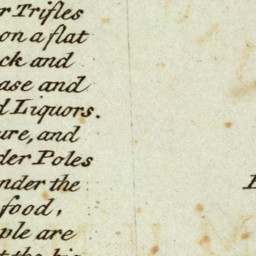 r Trifles
on a flat
ck and
ase and
d Liquors.
ure, and
der Poles
nder the
food,
ple are